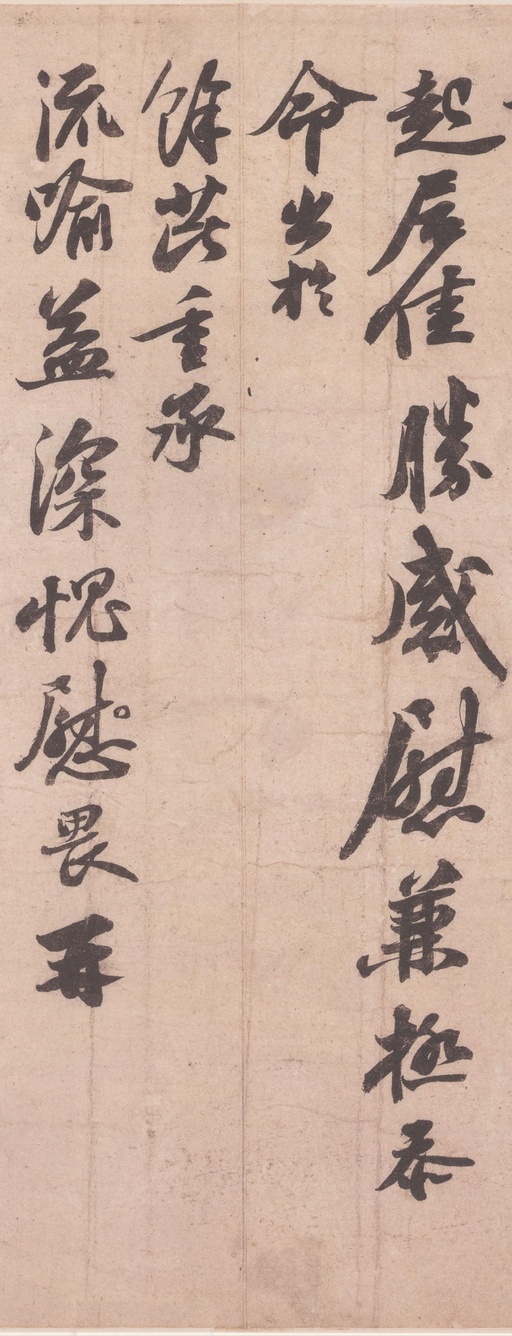 起居佳勝感慰兼極忝
命出於
餘芘重承
流喻益深愧慰畏再